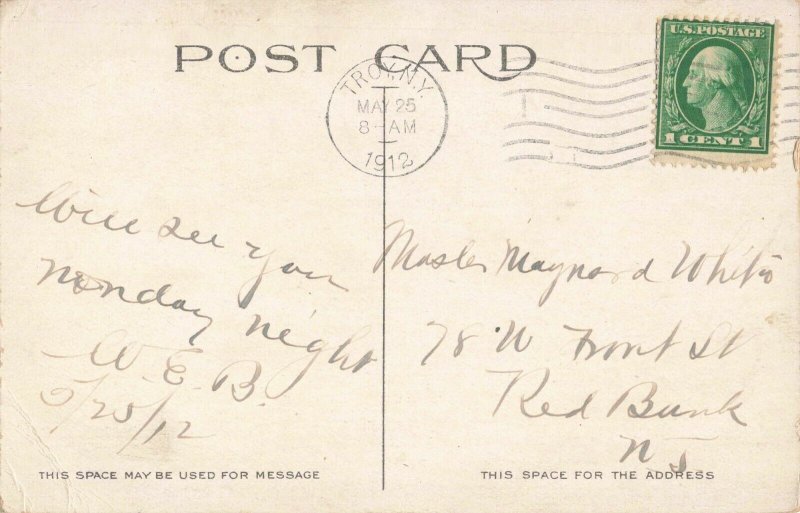 POST CARD
TROY, N.Y.
MAY 25
8-AM
1912
U.S. POSTAGE
1 CENT 1
Will see you
monday night
W. E. B.
5/25/12
Master Maynard White
78 W Front St
Red Bank
NJ
THIS SPACE MAY BE USED FOR MESSAGE
THIS SPACE FOR THE ADDRESS